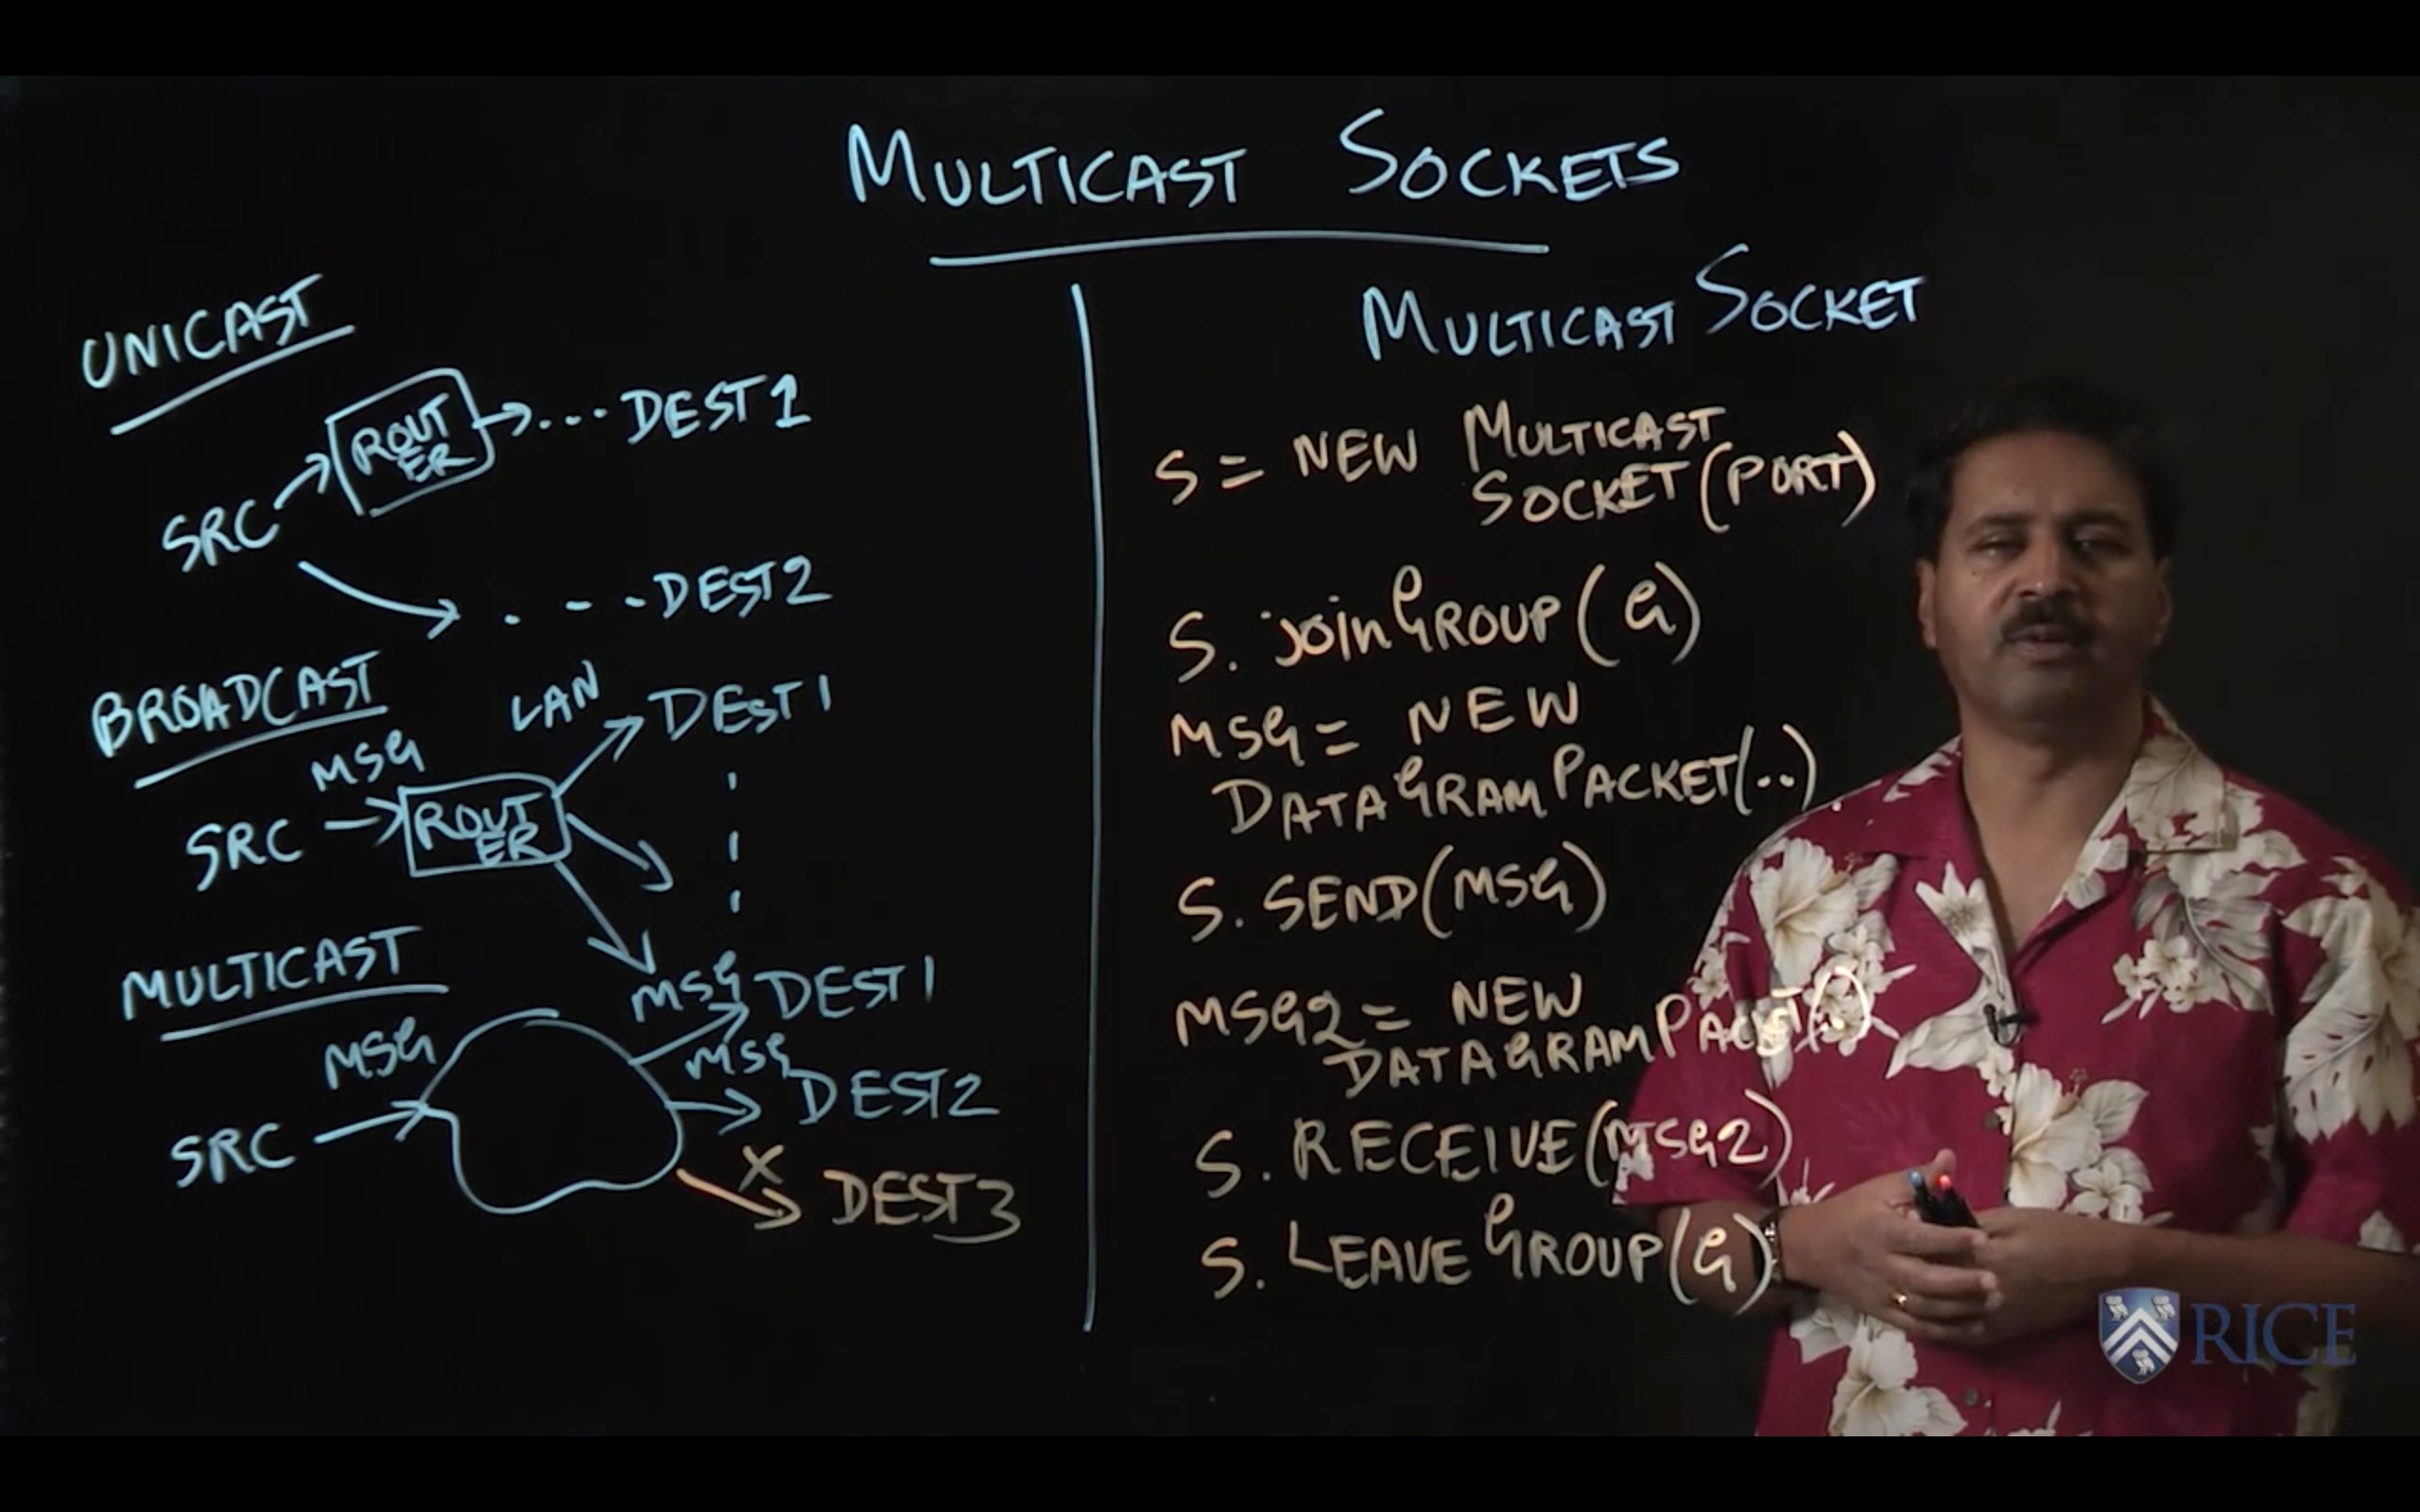 MULTICAST SOCKETS
UNICAST
ROUT
ER
... DEST1
SRC
. - - DEST2
BROADCAST
LAN
DEST1
MSG
SRC
ROUT
ER
MULTICAST
MSG
SRC
MSG DEST1
MSG
DEST2
X
DEST3
MULTICAST SOCKET
S = NEW MULTICAST
SOCKET(PORT)
S. joinGROUP(G)
MSG = NEW
DATAGRAMPACKET(..)
S. SEND(MSG)
MSG2 = NEW
DATAGRAMPACKET(.)
S. RECEIVE(MSG2)
S. LEAVEGROUP(G)
RICE